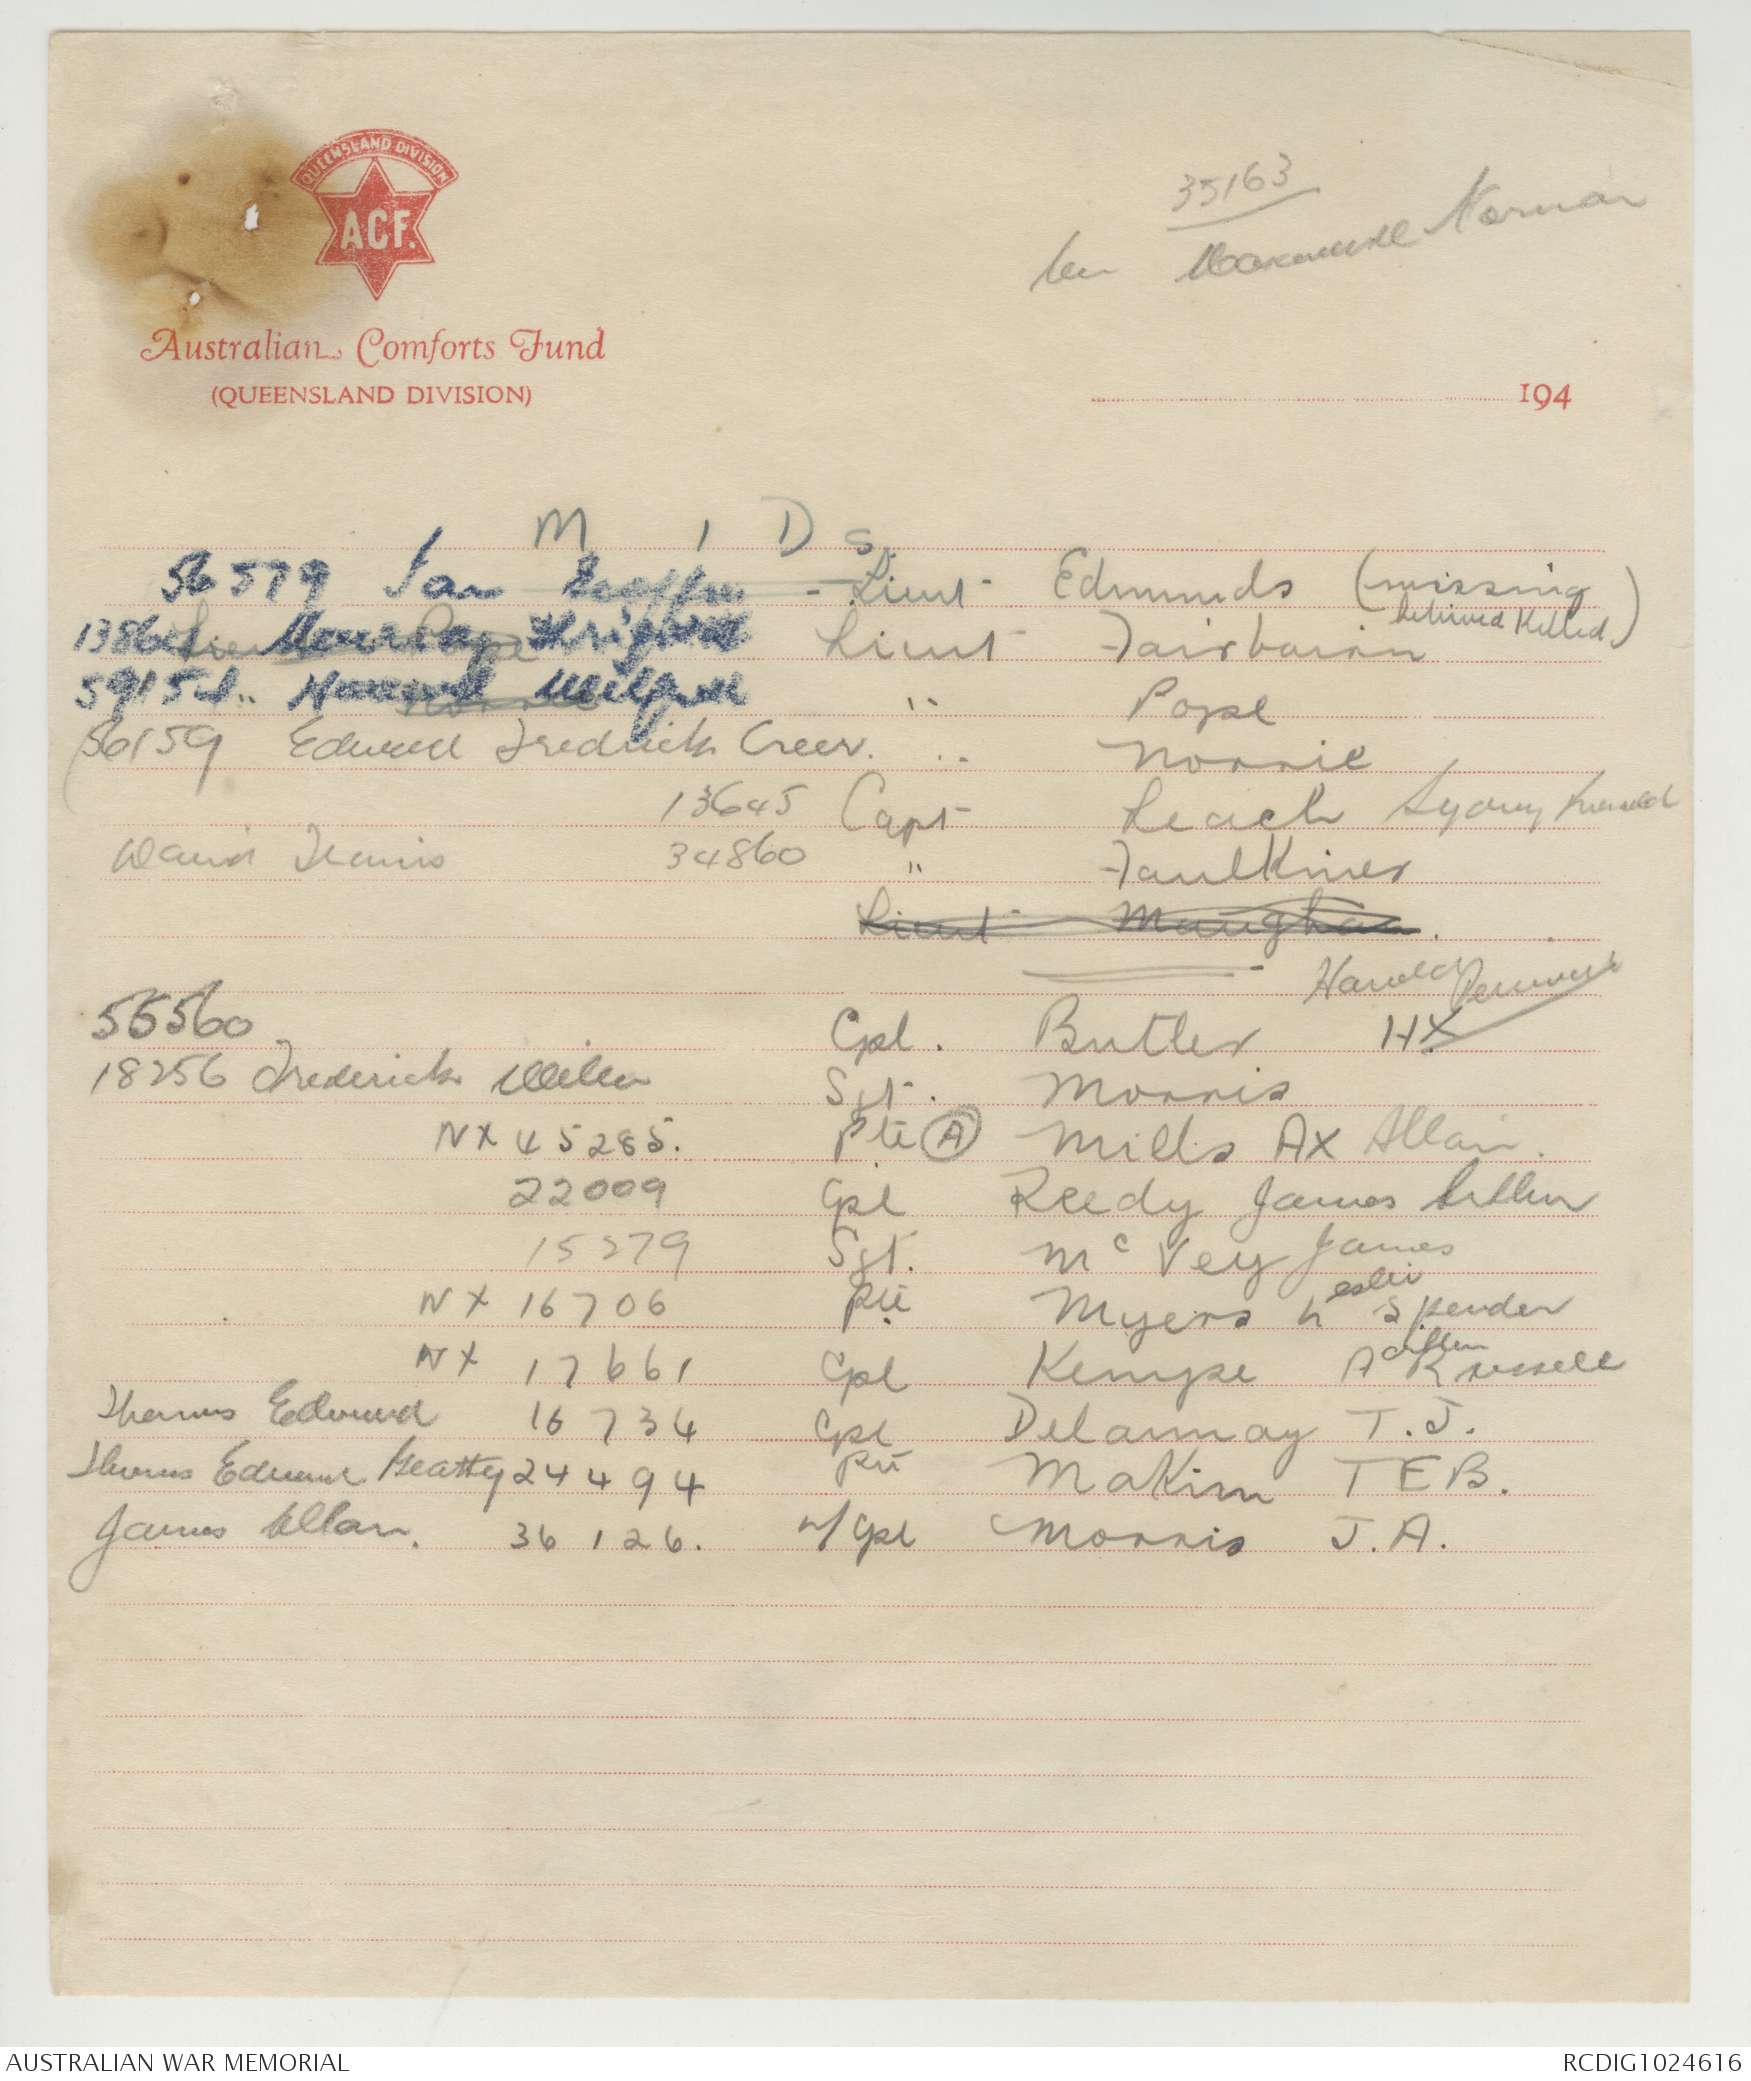 QUEENSLAND DIVISION
ACF.
Australian Comforts Fund
(QUEENSLAND DIVISION)
35163
Norman
194
M I D s.
56579 Ian - Lieut Edmunds (missing believed Killed)
1386 Murray Lieut Fairbairn
5915 " Pope
56159 Edward Fredrick Creer. " Norrie
13645 Capt Leach Sydney
David 34860 " Faulkner
Lieut Maughan.
Harold
56560 Cpl. Butler HX
18256 Frederick Sgt. Morris
NX 45285. Pte (A) Mills AX Allan.
22009 Cpl Reedy James Arthur
15379 Sgt. McVey James
NX 16706 Pte Myers Leslie Spender
NX 17661 Cpl Kempe Arthur Russell
Thomas Edward 16734 Cpl Delannay T.J.
Thomas Edward Beatty 24494 Pte Makim T E B.
James Allan. 36126. Cpl Morris J.A.
AUSTRALIAN WAR MEMORIAL
RCDIG1024616